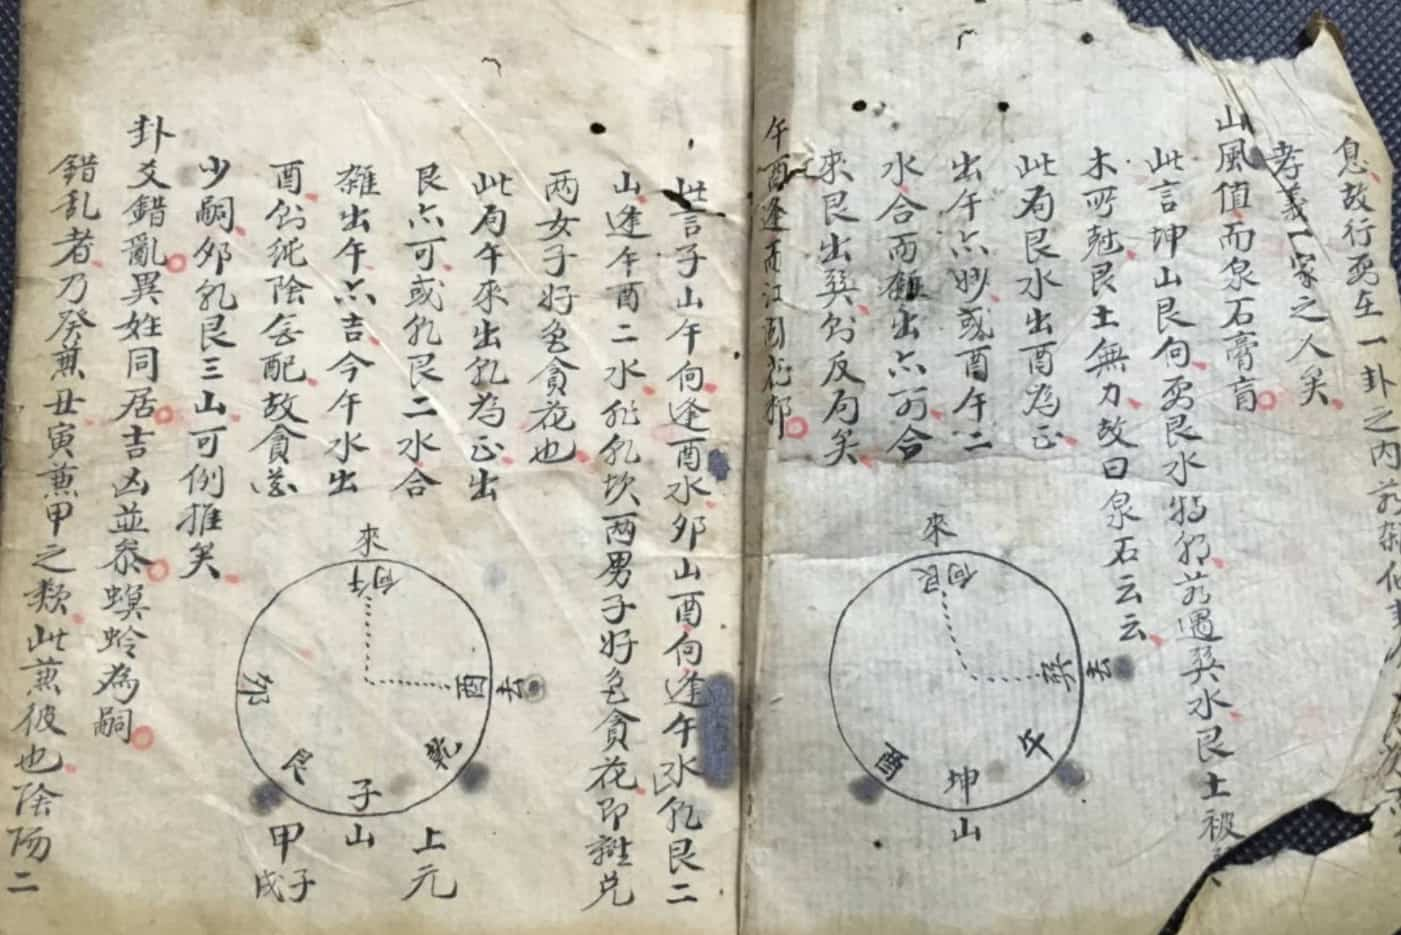 息故行至在一卦之内
孝義一家之人矣
山風值而泉石膏肓
此言坤山艮向至艮水特邜若遇巽水艮土被
木所尅艮土無力故曰泉石云云
此局艮水出酉為正
出午亦妙或酉午二
水合而雜出亦可合
來艮出巽則反局矣
午酉逢而江湖花柳
此言子山午向逢酉水邜山酉向逢午水乾艮二
山逢午酉二水非乾坎两男子好色貪花即離兑
两女子好色貪花也
此局午來出乾為正出
艮亦可或乾艮二水合
雜出午亦吉今午水出
酉則純陰無配故貪淫
少嗣邜乾艮三山可例推矣
卦爻錯亂異姓同居吉凶並叅螟蛉為嗣
錯乱者乃癸兼丑寅兼甲之類此兼彼也陰陽二
來
向艮
巽去
午
酉
坤
山
來
向午
酉去
乾
邜
艮
子
山
上元
甲子
戌